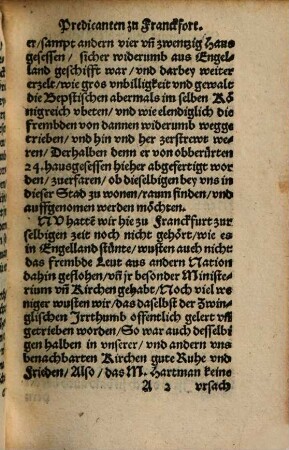 Predicanten zu Franckfort.
er/sampt andern vier vñ zwenzig Haus
gesessen/ sicher widerumb aus Engel-
land geschifft war/vnd darbey weiter
erzelt/wie gros vnbilligkeit vnd gewalt
die Bepstischen abermals im selben Kö
nigreich vbeten/ vnd wie elendiglich die
frembden von dannen widerumb wegge
trieben/ vnd hin vnd her zerstrewt we-
ren/ Derhalben denn er von obberürten
24.hausgesessen hieher abgefertigt wor
den/zuerfaren/ ob dieselbigen bey vns in
dieser Stad zu wonen/ raum finden/vnd
auffgenomen werden möchten.
NV hattẽ wir hie zu Franckfurt zur
selbigen zeit noch nicht gehört/wie es
in Engelland stünte/ wusten auch nicht
das frembde Leut aus andern Nation
dahin geflohen/vñ jr besonder Ministe-
rium vñ Kirchen gehabt/Noch viel we
niger wusten wir/das daselbst der Zwin
glischen Irrthumb öffentlich gelert vñ
getrieben worden/So war auch desselbi
gen halben in vnserer/ vnd andern vns
benachbarten Kirchen gute Ruhe vnd
Frieden/ Also/ das M. Hartman keine
A 2 vrsach